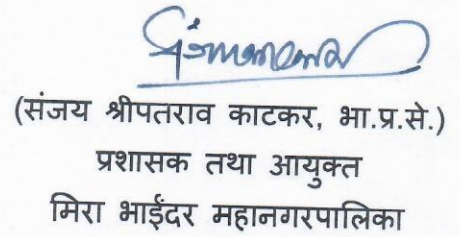 (संजय श्रीपतराव काटकर, भा.प्र.से.)
प्रशासक तथा आयुक्त
मिरा भाईंदर महानगरपालिका